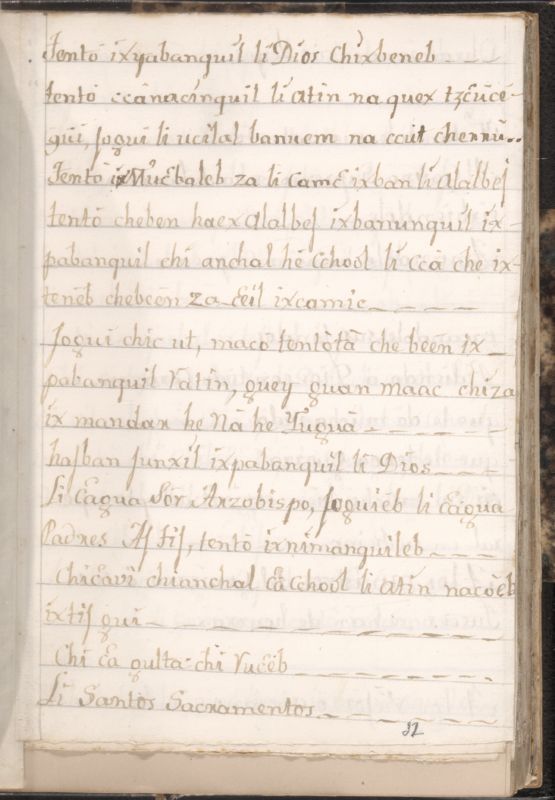 Tentò ixyabanquil li Dios Chixbeneb
tentò ccanacinquil li atin na quex tzcuce-
gui, Jogui li ucilal banuem na ccut chennu..
Tentò ix Mucbaleb za li Came ixban li alalbej
tentò cheben haex alalbej ixbanunquil ix-
pabanquil chi anchal hè Cchool li ccà che ix-
tenèb chebeen za Ceil ixcamic
Jogui chic ut, maco tentotà che been ix-
pabanquil ratin, guey guan maac chiza
ix mandar he Nà he Yuguà
hajban junxil ixpabanquil li Dios
Li Cagua Sôr Arzobispo, Joguièb li Caigua
Padres Aj tij, tentò ixnimanquileb
Chicavi chianchal ca Cchool li atin nacoèb
ixtij gui
Chi Ca gulta chi rucèb
Li Santos Sacramentos
32